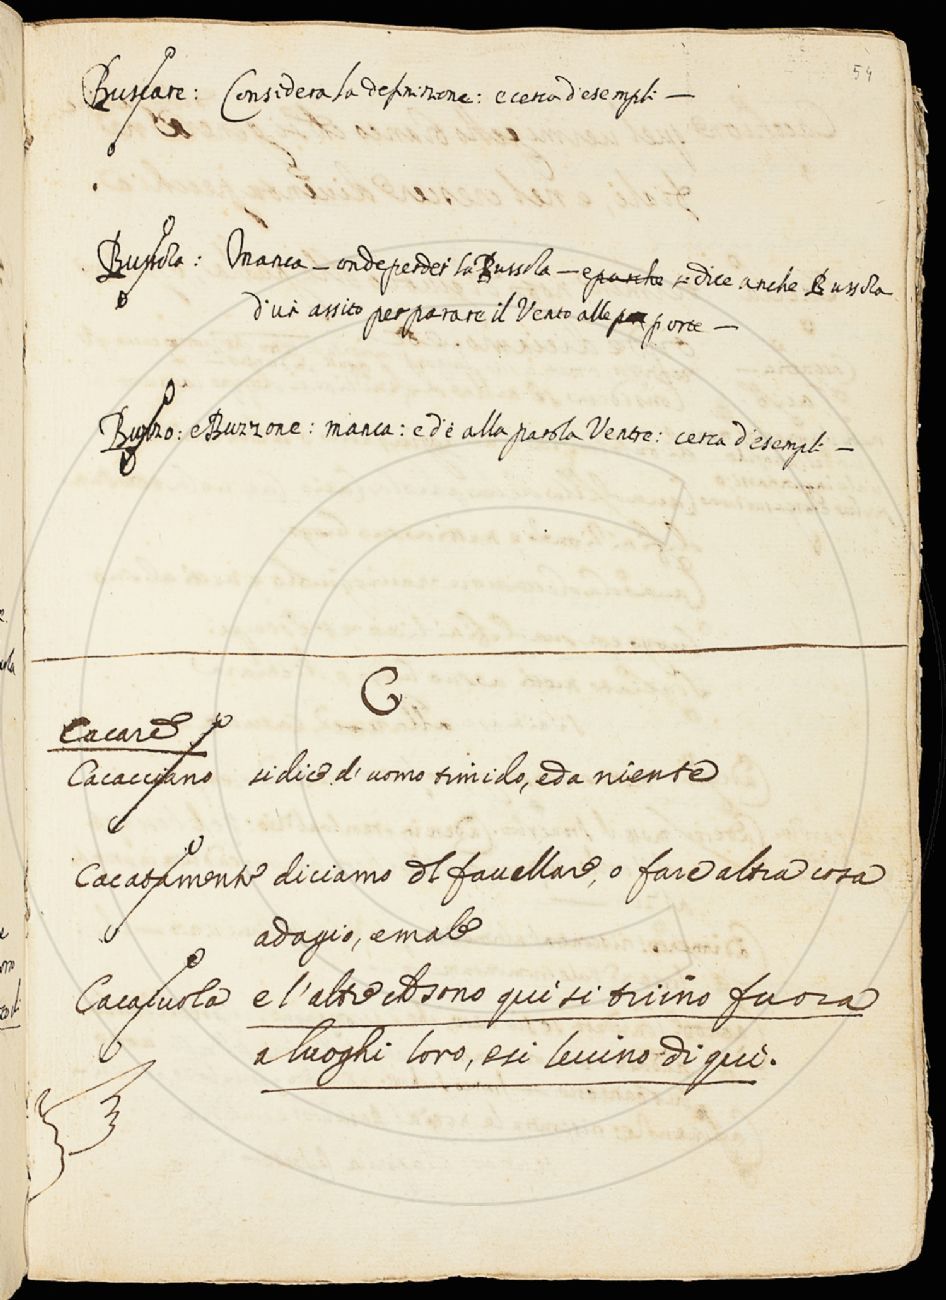 54
Buscare: Considera la definizione: e cerca d'esempli —
Bussola: Manca — onde perder la Bussola — e perche si dice anche Bussola
d'un assito per parare il Vento alle porte —
Buzzo: e Buzzone: manca: ed è alla parola Ventre: cerca d'esempli —
C
Cacare
Cacacciano si dice d'uomo timido, e da niente
Cacatamente diciamo del favellare, o fare altra cosa
adagio, e male
Cacaiuola e l'altre ch sono qui si truino fuora
a luoghi loro, e si levino di qui.